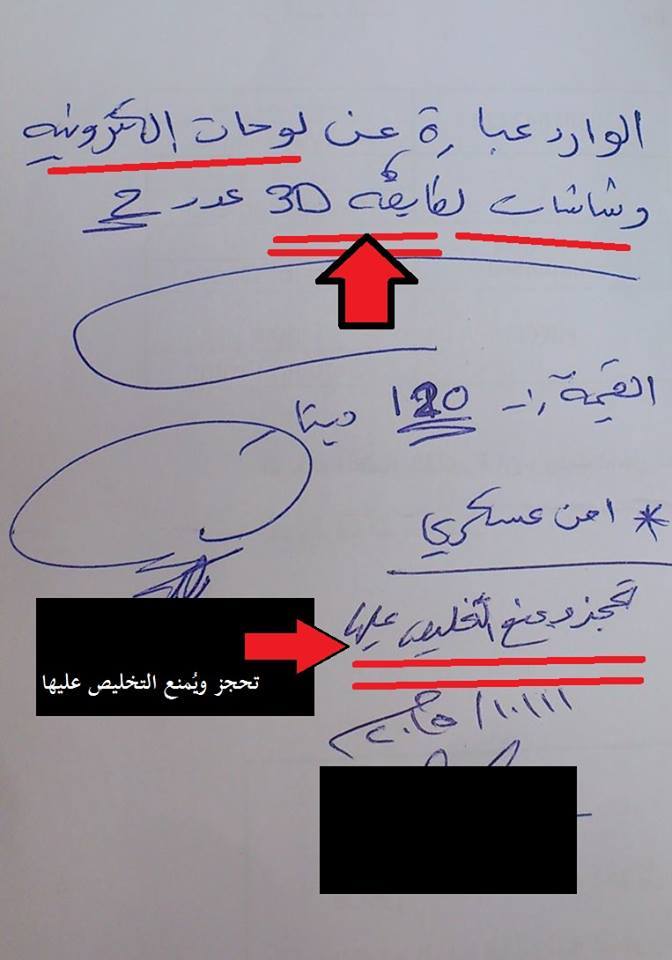 الوارد عبارة عن لوحات الكترونيه
وشاشات لطابعة 3D عدد 2
القيمة 120 دينار
* امن عسكري
تحجز ويمنع التخليص عليها
تحجز ويُمنع التخليص عليها